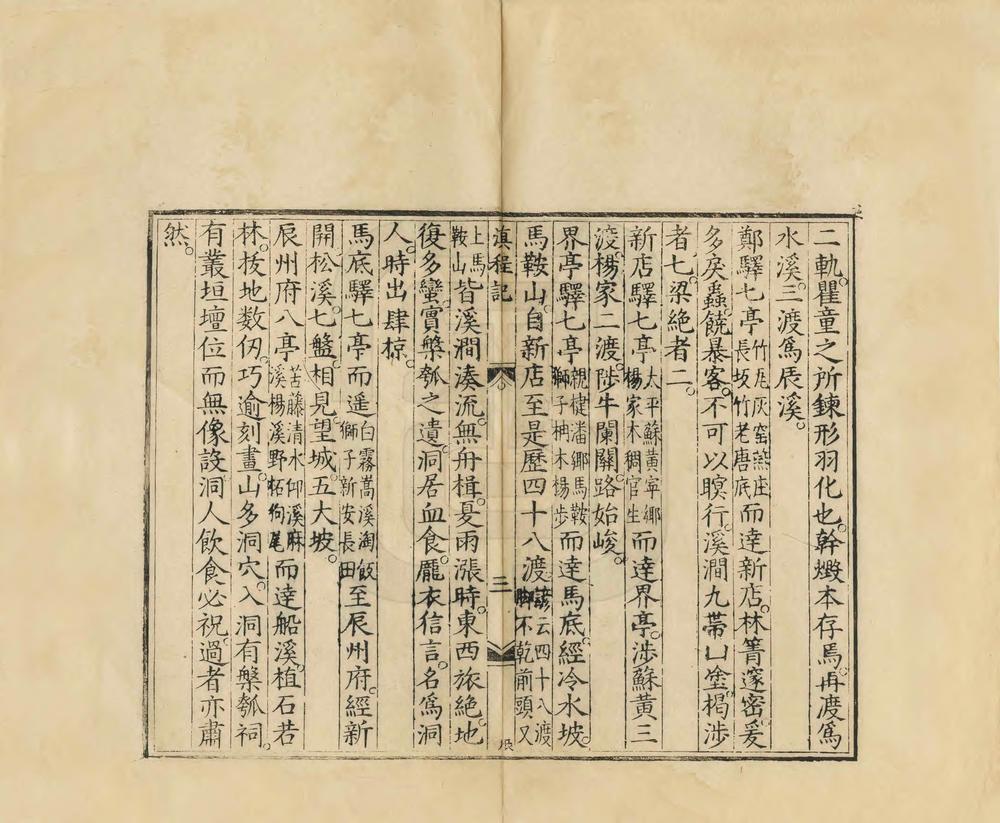 二軌瞿童之所鍊形羽化也。幹燬本存焉。再渡爲
水溪。三渡爲辰溪。
鄭驛七亭竹瓦灰窑蒸庄長坂竹老唐底而達新店。林箐邃密。爰
多戾蟲。饒暴客。不可以暝行。溪澗九帶。凵塗楬涉
者七。梁絶者二。
新店驛七亭太平蘇黃寧鄉楊家木稠官生而達界亭。涉蘇黃三
渡。楊家二渡。陟牛闌關。路始峻。
界亭驛七亭親楗潘鄉馬鞍獅子柚木楊步而達馬底。經冷水坡。
馬鞍山。自新店至是歷四十八渡諺云四十八渡脚不乾前頭又
滇程記
三
上馬鞍山皆溪澗湊流。無舟楫。憂雨漲時。東西旅絶。地
復多蠻。實槃瓠之遺。洞居血食。厖衣信言。名爲洞
人。時出肆椋。
馬底驛七亭而遥白霧蒿溪淘飯獅子新安長田至辰州府。經新
開。松溪。七盤。相見。望城。五大坡。
辰州府八亭苦藤清水仰溪麻溪楊溪野柘狗尾而達船溪。植石若
林。拔地数仞。巧逾刻畫。山多洞穴。入洞有槃瓠祠。
有叢垣壇位而無像設。洞人飲食必祝。過者亦肅
然。